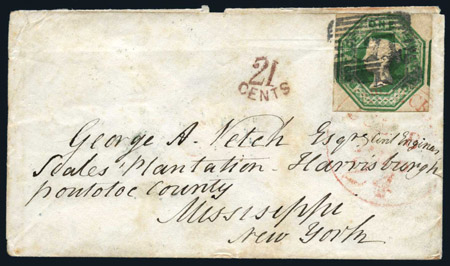 21
CENTS
George A. Vetch Esqr Civil Engineer
Scales Plantation Harrisburgh
pontotoc County
Mississippi
New York